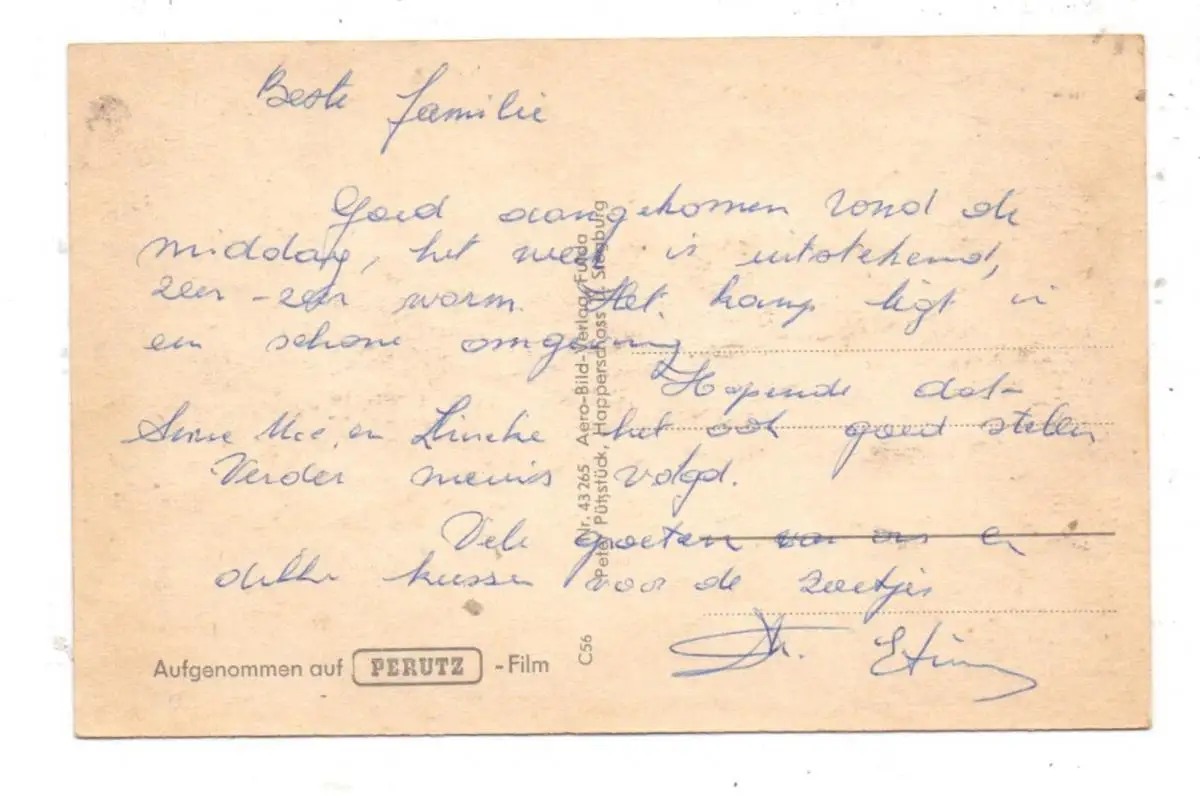 Beste familie
Goed aangekomen rond de
middag, het weer is uitstekend,
zeer - zeer warm. Het kamp ligt in
een schone omgeving
Hopende dat
en het ook goed stellen
Verder nieuws volgd.
Vele groeten van ons en
dikke kussen voor de zoetjes
Aufgenommen auf PERUTZ - Film
C56
Nr. 43265 Aero-Bild-Verlag, Fulda
Peter Pützstück, Happerschoss ü. Siegburg